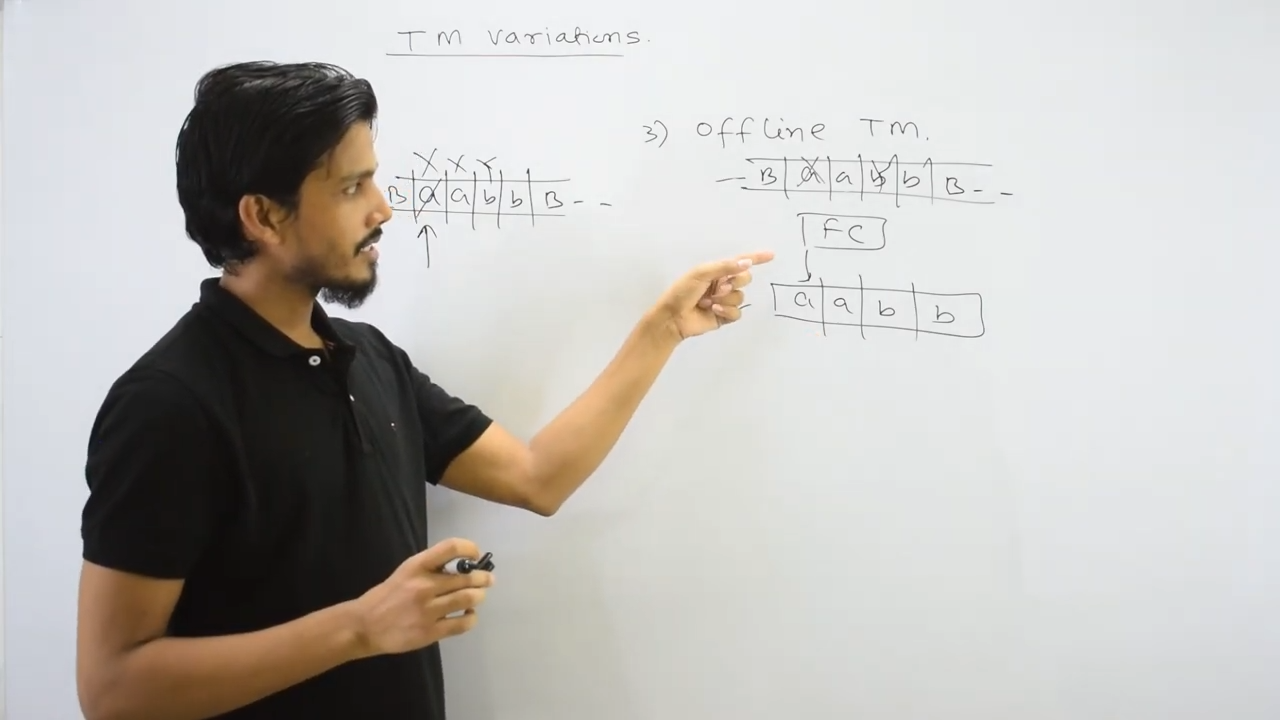 TM variations.
X X Y
B a a b b B - -
3) Offline TM.
- B a a b b B - -
FC
a a b b